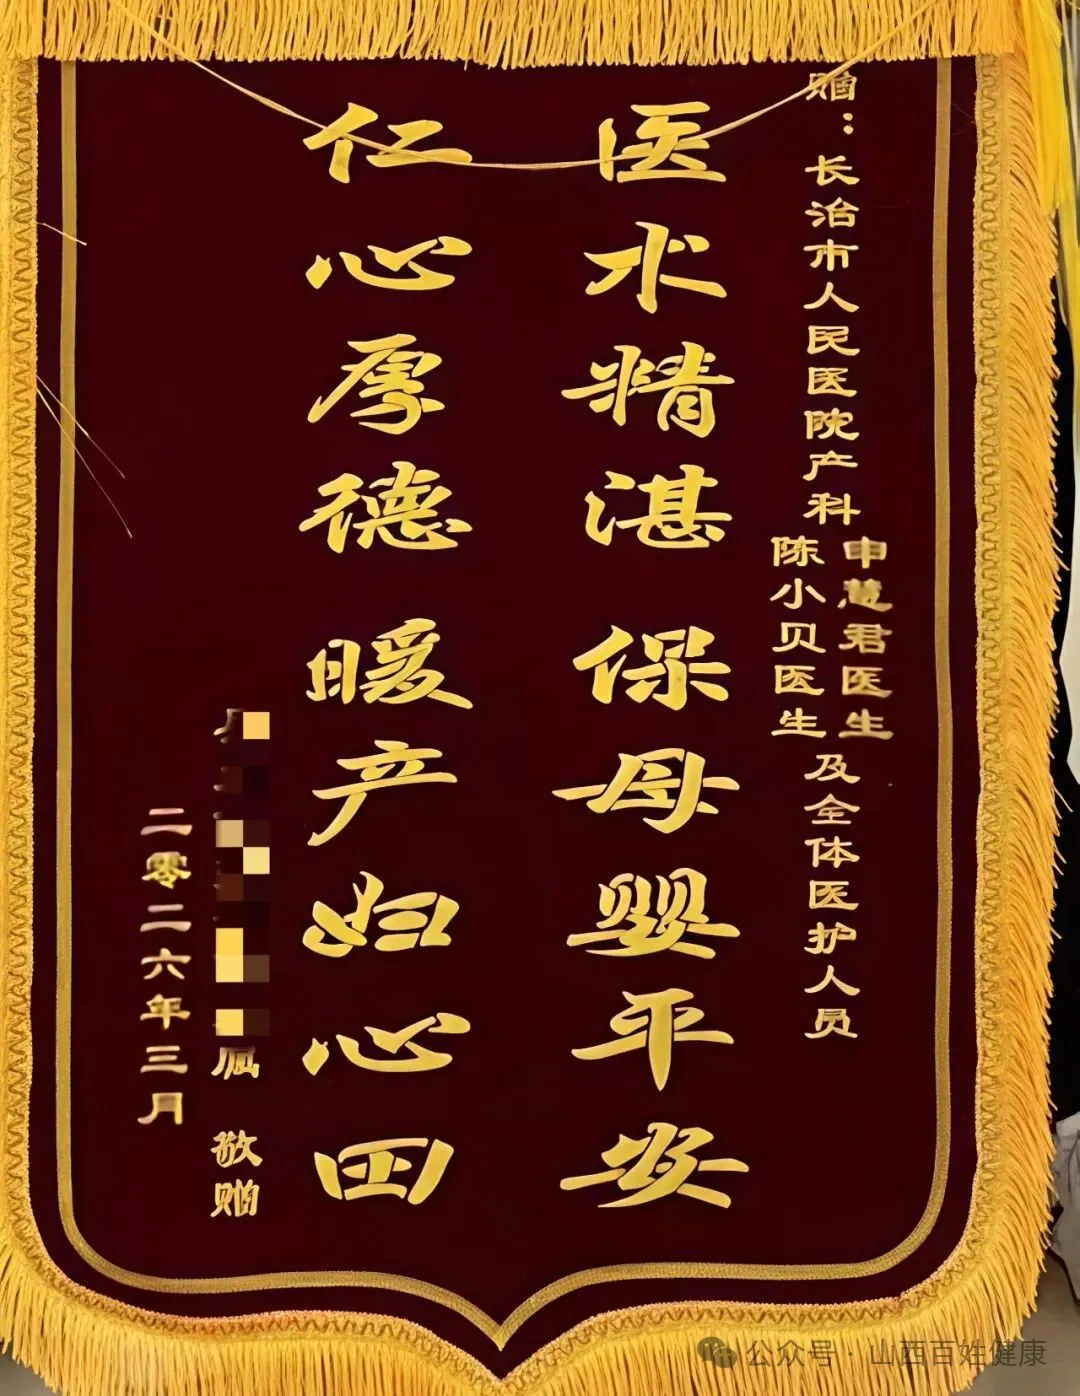 赠：长治市人民医院产科
申慧君医生
陈小贝医生
及全体医护人员
医术精湛 保母婴平安
仁心厚德 暖产妇心田
敬赠
二零二六年三月
公众号·山西百姓健康